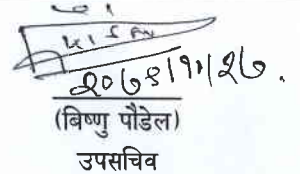 २०७९।११।२७.
(बिष्णु पौडेल)
उपसचिव